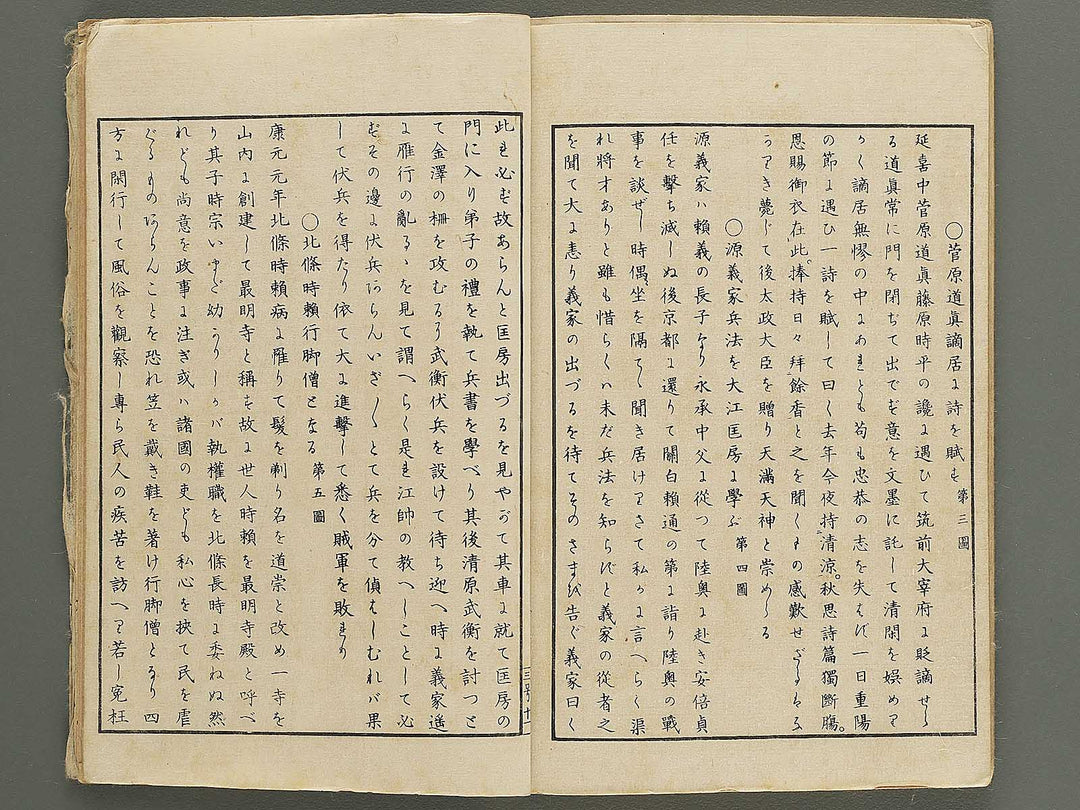 ○菅原道眞謫居に詩を賦す 第三圖
延喜中菅原道眞藤原時平の讒に遇ひて筑前大宰府に貶謫せら
る道眞常に門を閉ぢて出でず意を文墨に託して清閑を娯めり
かく謫居無慘の中にあれども苟も忠恭の志を失はず一日重陽
の節に遇ひ一詩を賦して曰く去年今夜持清涼。秋思詩篇獨斷膓。
恩賜御衣在此。捧持日々拜餘香と之を聞くもの感歎せざるはな
かりき薨じて後太政大臣を贈り天滿天神と崇めらる
○源義家兵法を大江匡房に學ぶ 第四圖
源義家ハ賴義の長子なり永承中父に從つて陸奥に赴き安倍貞
任を擊ち滅しぬ後京都に還りて關白賴通の第に詣り陸奥の戰
事を談ぜし時偶〻坐を隔てゝ聞き居けりさて私かに言へらく渠
れ將才ありと雖も惜らくハ未だ兵法を知らずと義家の從者之
を聞て大に恚り義家の出づるを待てそのさまを告ぐ義家曰く
此れ必ず故あらんと匡房出づるを見やがて其車に就て匡房の
門に入り弟子の禮を執て兵書を學べり其後清原武衡を討つと
て金澤の柵を攻むるに武衡伏兵を設けて待ち迎へ時に義家遙
に雁行の亂るゝを見て謂へらく是れ江帥の教へしことして必
ずその邊に伏兵あらんいざ〳〵とて兵を分て偵はしむれバ果
して伏兵を得たり依て大に進擊して悉く賊軍を敗れり
○北條時賴行脚僧となる 第五圖
康元元年北條時賴病に罹りて髮を剃り名を道崇と改め一寺を
山内に創建して最明寺と稱す故に世人時賴を最明寺殿と呼べ
り其子時宗いまだ幼かりしかバ執權職を北條長時に委ねぬ然
れども尚意を政事に注ぎ或ハ諸國の吏ども私心を挾て民を虐
ぐるものあらんことを恐れ笠を戴き鞋を著け行脚僧となり四
方に閑行して風俗を觀察し專ら民人の疾苦を訪へり若し寃枉
三号十一